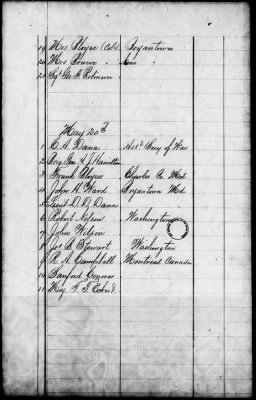 19 Mrs Floyd (Col'd) Bryantown
20 Mrs Simms " "
21 Sgt Geo F. Robinson "
May 20th
1 C. A. Dana Asst Secy of War
2 Brig Gen A. J. Hamilton
3 Frank Bloyce Charles Co Md
4 John H. Ward Bryantown Md.
5 Lieut D. D. Dana
6 Robert Nelson Washington
7 John Wilson
8 Jos B Stewart Washington
9 R. A. Campbell Montreal Canada
10 Sanford Conover
11 Maj. T. T. Eckert